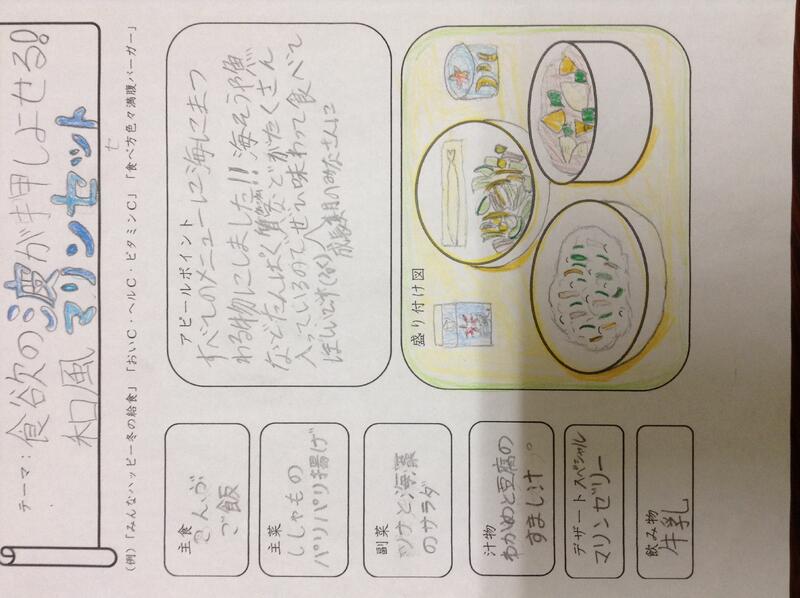 テーマ:食欲の波が押しよせる!
和風マリンセット
セ
(例)「みんなハッピー冬の給食」「おいC・ヘルC・ビタミンC」「食べ方色々満腹バーガー」
主食
ご飯
主菜
ししゃもの
パリパリ揚げ
副菜
ツナと海藻
のサラダ
汁物
わかめと豆腐の
すまし汁。
デザートスペシャル
マリンゼリー
飲み物
牛乳
アピールポイント
すべてのメニューに海にまつ
わる物にしました!!海そうや魚
などたんぱく質などがたくさん
入っているのでぜひ味わって食べて
ほしいです
みなさんに
盛り付け図